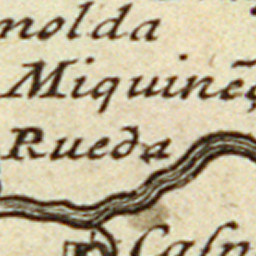 nolda
Miquinẽç
Rueda
Casp